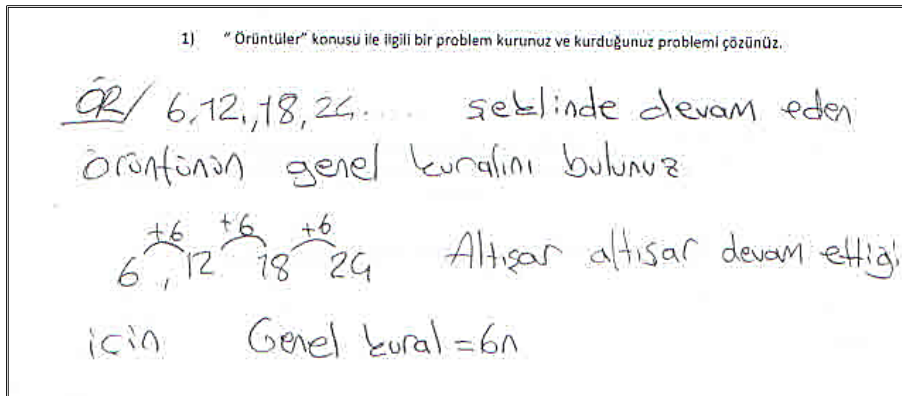 1) " Örüntüler" konusu ile ilgili bir problem kurunuz ve kurduğunuz problemi çözünüz.
ÖR/ 6,12,,18,24.... şeklinde devam eden
örüntünün genel kuralını bulunuz
+6 +6 +6
6 , 12 18 24 Altışar altışar devam ettiği
için Genel kural = 6n